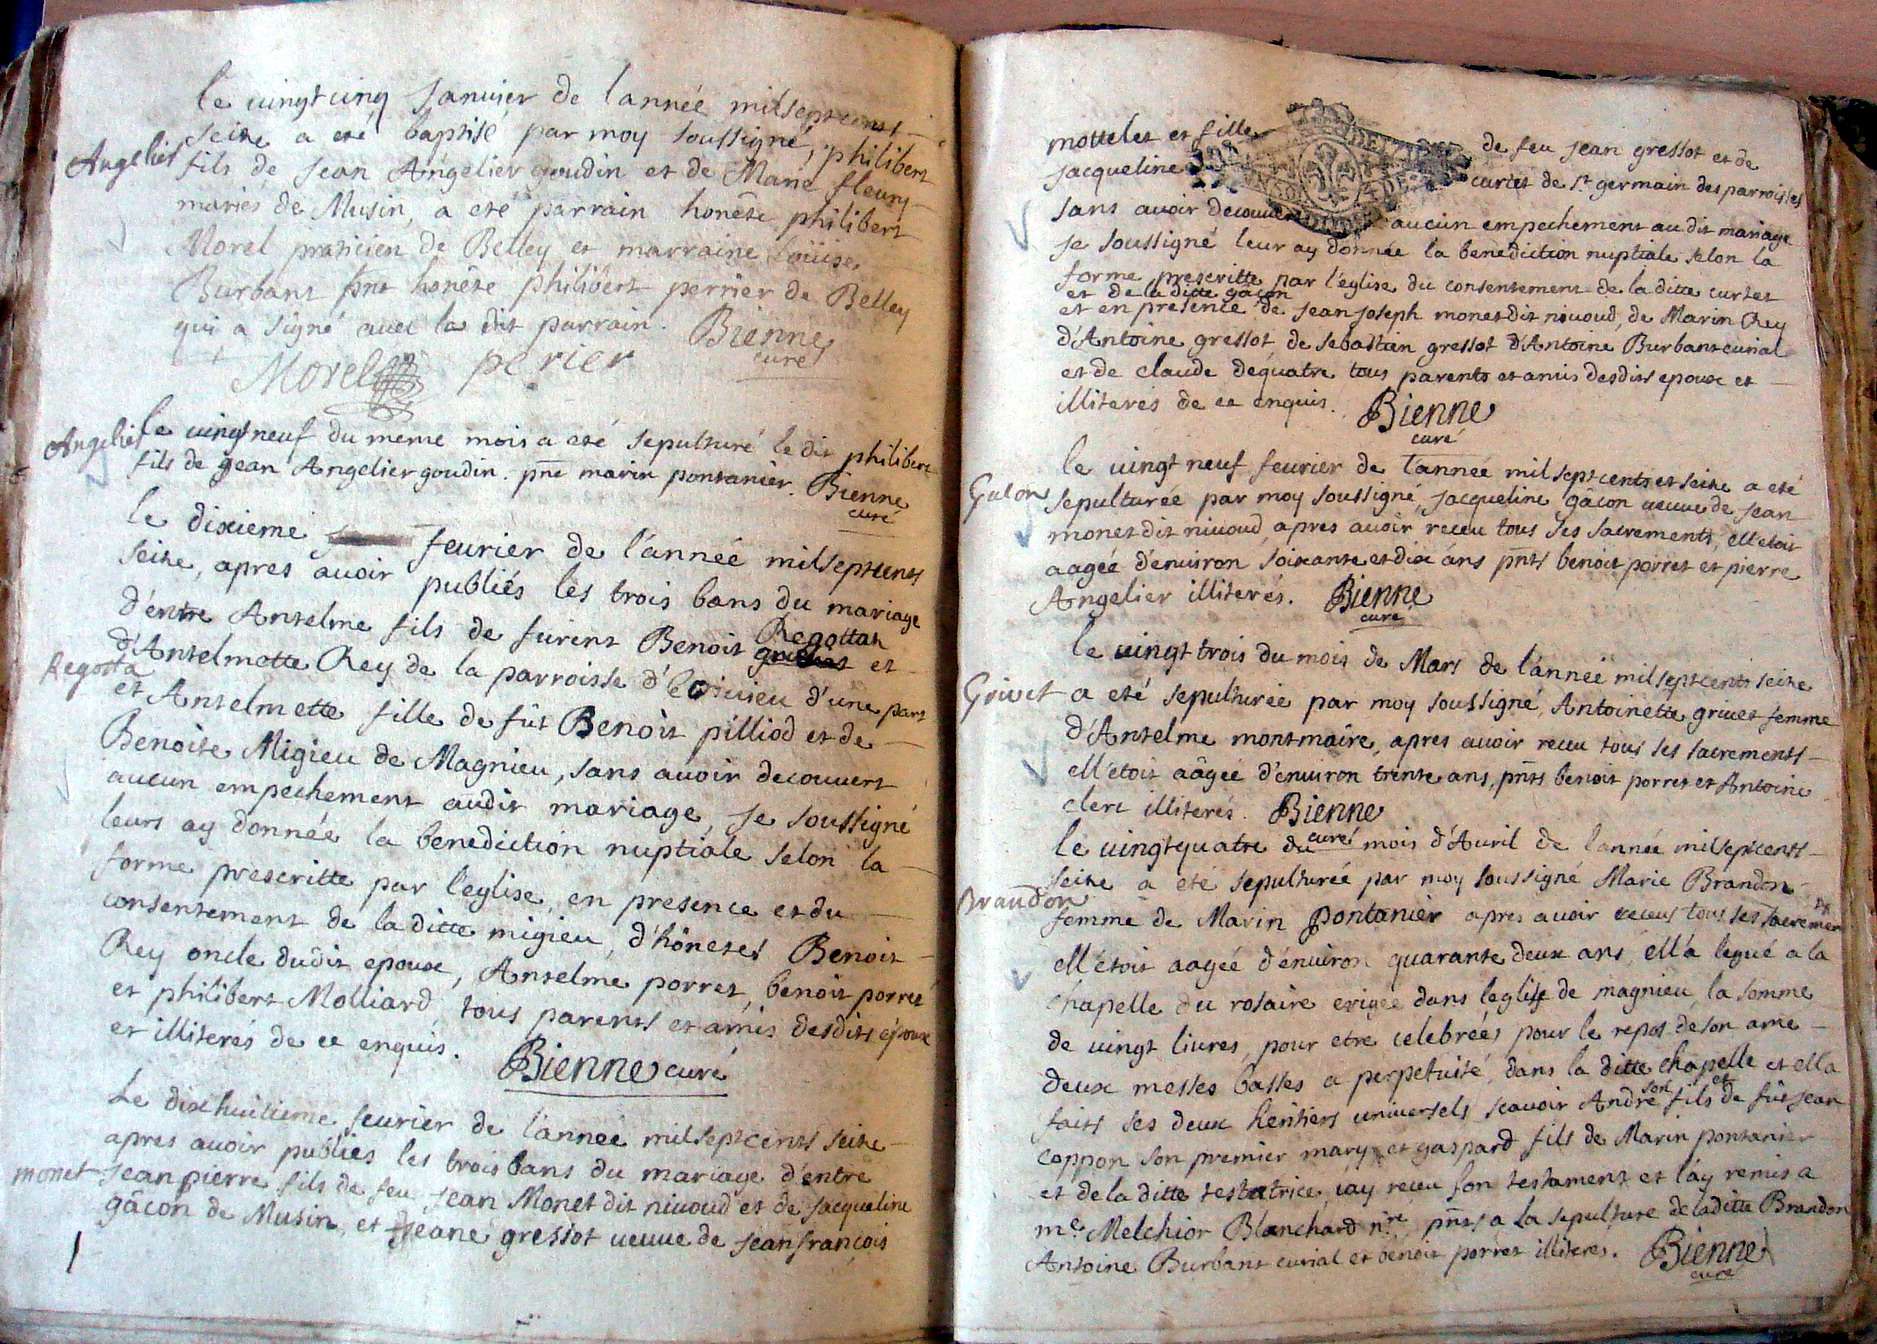 le vingt cinq Janvier de l'année mil sept cents
seize a eté baptisé par moy soussigné, philibert
Angelier
fils de Jean Angelier goudin et de Marie fleury
mariés de Musin, a eté parrain honête philibert
Morel praticien de Belley et marraine Loüise
Burbant pnt honête philibert perrier de Belley
qui a signé avec la dit parrain. Bienne
curé
Morel perier
Angelier
le vingt neuf du meme mois a eté sepulturé le dit philibert
fils de jean Angelier goudin. pnt marin pontanier. Bienne
curé
le dixieme fevrier de l'année mil sept cents
seize, apres avoir publiés les trois bans du mariage
d'entre Antelme fils de furent Benoit Regottaz et
d'Antelmette Rey de la parroisse d' d'une part
Regotta
et Antelmette fille de fût Benoit pilliod et de
Benoite Migieu de Magnieu, sans avoir decouvert
aucun empechement audit mariage je soussigné
leurs ay donnée la benediction nuptiale selon la
forme prescritte par l'eglise, en presence et du
consentement de la ditte migieu, d'hônetes Benoit
Rey oncle dudit epoux, Antelme porret, benoit porret
et philibert Molliard, tous parents et amis desdits époux
et illiterés de ce enquis. Bienne curé
Le dix huitieme fevrier de l'année mil sept cents seize
apres avoir publiés les trois bans du mariage d'entre
monet
Jean pierre fils de feu Jean Monet dit nivoud et de Jacqueline
gâcon de Musin, et Jeane gressot veuve de Jean françois
mottelet et fille de feu jean gressot et de
jacqueline curtet de St germain des parroisses
sans avoir decouvert aucun empechement au dit mariage
je soussigné leur ay donnée la benediction nuptiale selon la
forme prescritte par l'église du consentement de la ditte curtet
et de la ditte gâcon
et en presence de Jean Joseph monet dit nivoud, de Marin Rey
d'Antoine gressot de sebastien gressot d'Antoine Burbant curial
et de claude dequatre tous parents et amis desdits epoux et
illiterés de ce enquis. Bienne
curé
le vingt neuf fevrier de l'année mil sept cents et seize a eté
Gacon
sepulturée par moy soussigné, jacqueline gâcon veuve de jean
monet dit nivoud, apres avoir receu tous ses sacrements, ell'etoit
aagée d'environ soixante et dix ans pnts benoit porret et pierre
Angelier illiterés. Bienne
curé
le vingt trois du mois de Mars de l'année mil sept cents seize
Grivet
a eté sepulturée par moy soussigné, Antoinette grivet femme
d'Antelme montmaire, apres avoir receu tous ses sacrements
ell'etoit aâgée d'environ trente ans, pnts benoit porret et Antoine
clerc illiterés. Bienne
curé
le vingt quatre du mois d'Avril de l'année mil sept cents
seize a eté sepulturée par moy soussigné Marie Brandon
Brandon
femme de Marin pontanier apres avoir receus tous ses sacremens
ell'étoit aagée d'environ quarante deux ans, ell'a legué a la
chapelle du rosaire erigée dans l'eglise de magnieu, la somme
de vingt livres, pour etre celebrées pour le repos de son ame
deux messes basses a perpetuité, dans la ditte chapelle et ella
faits ses deux heritiers universels, scavoir André son fils et de fût jean
coppon son premier mary, et gaspard fils de Marin pontanier
et de la ditte testatrice, jay receu son testament et l'ay remis a
me Melchior Blanchard nre, pnts a la sepulture de la ditte Brandon
Antoine Burbant curial et benoit porret illiteres. Bienne
curé